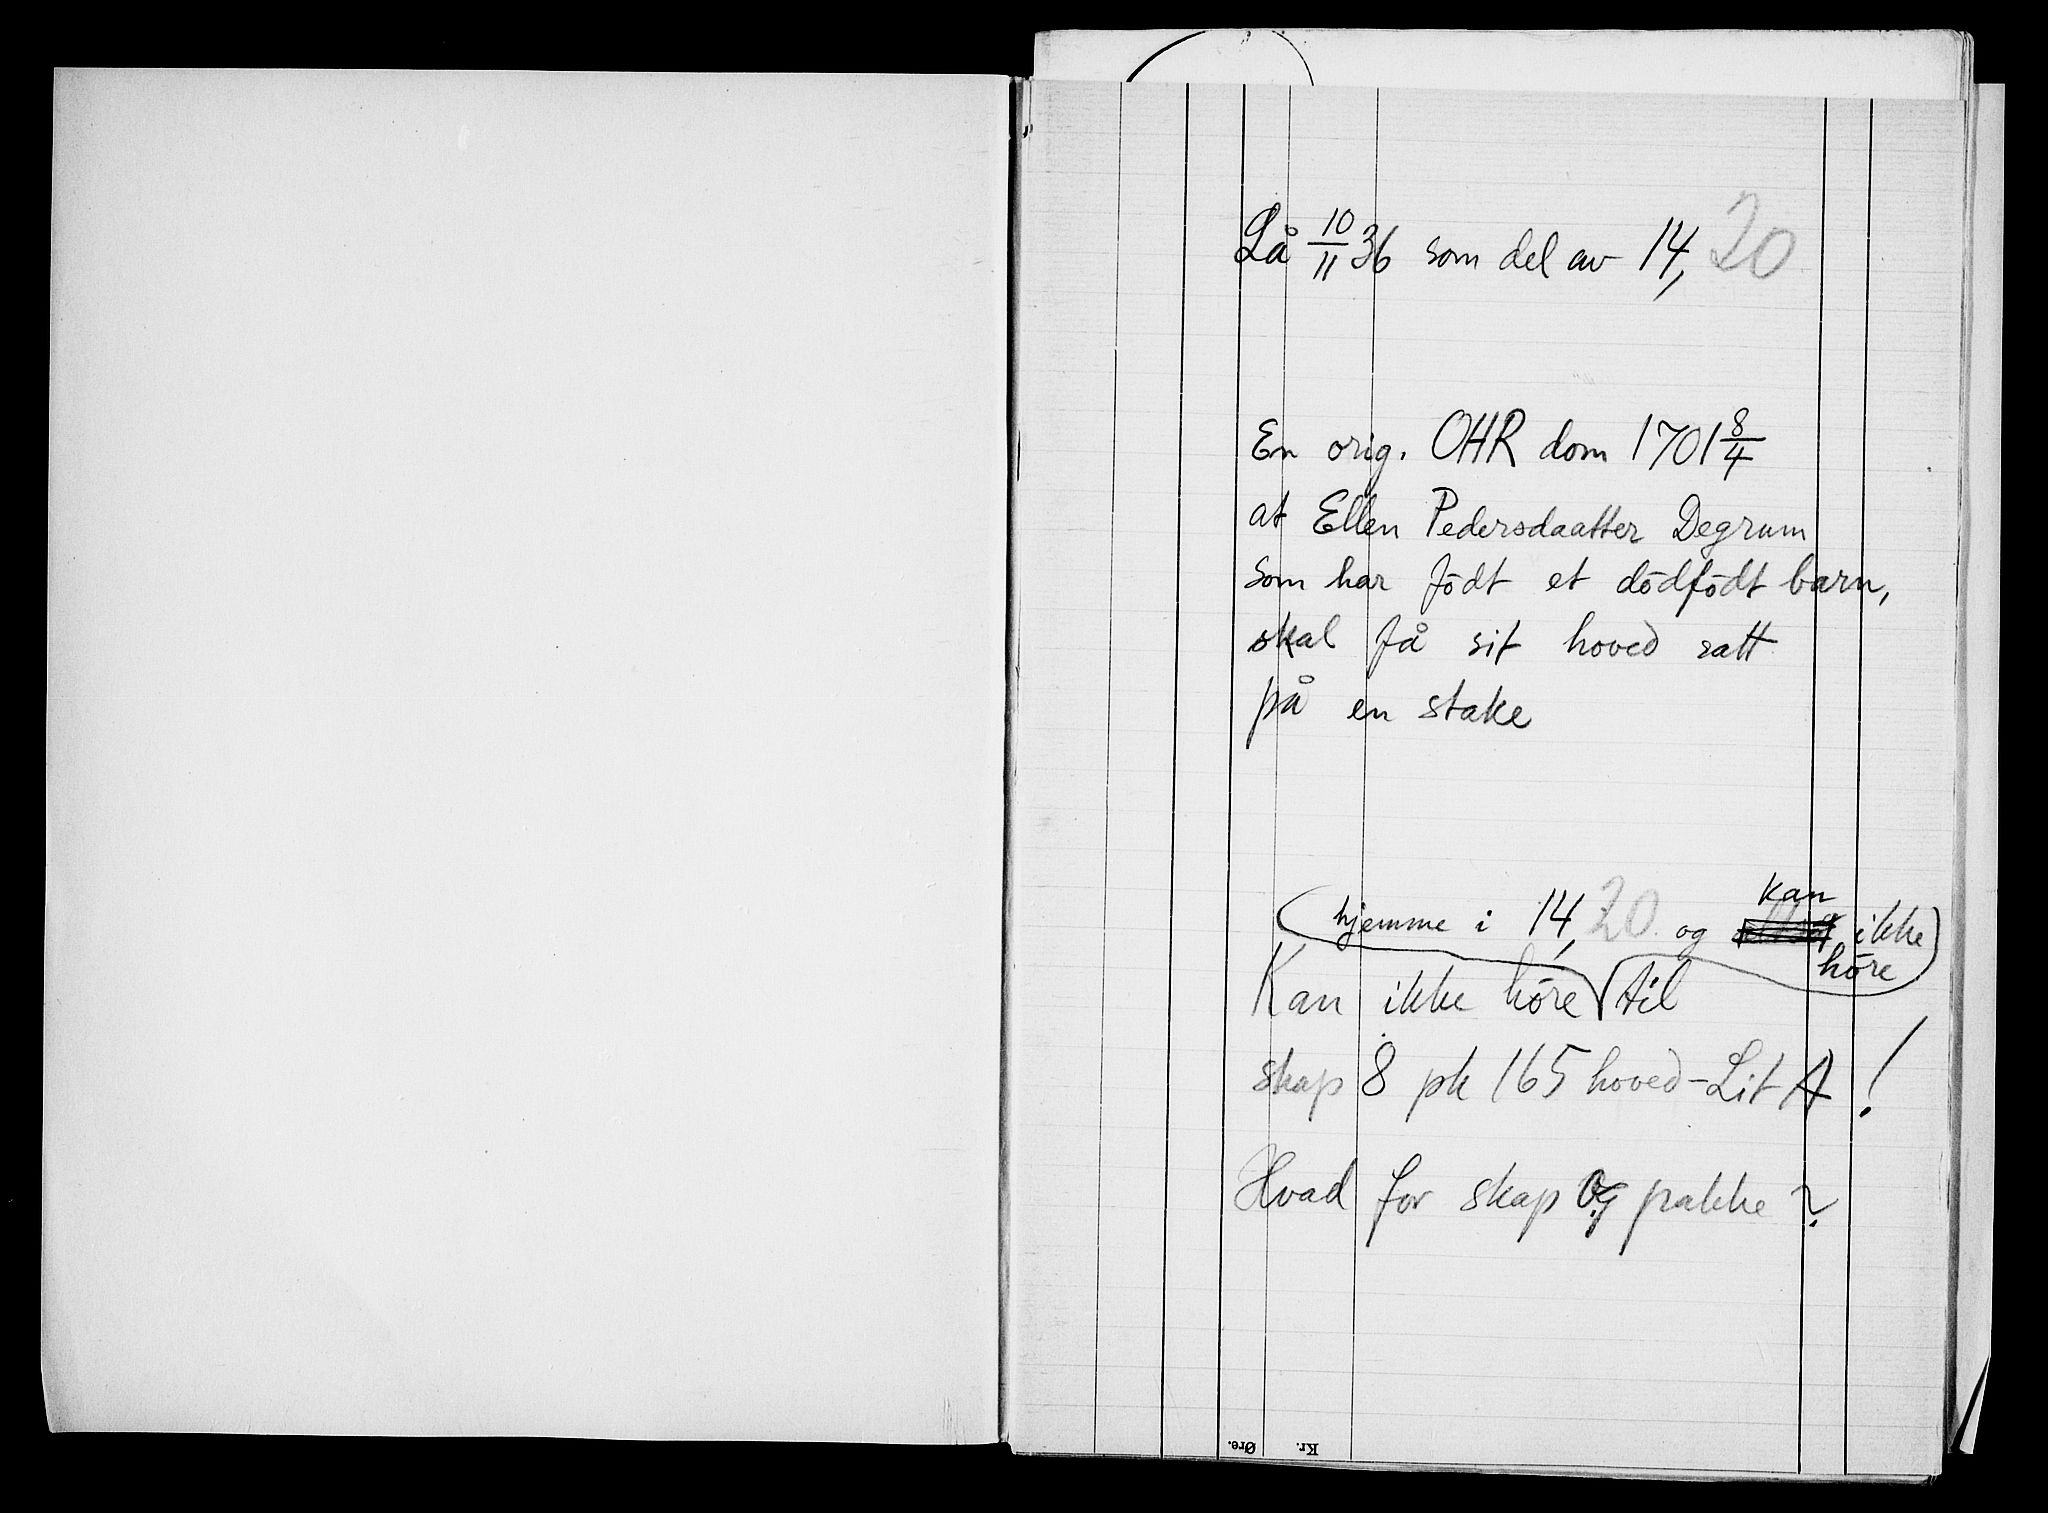 Lå 10/11 36 som del av 14, 20
En orig. OHR dom 1701 8/4
at Ellen Pedersdaatter Degrum
som har födt et dödfödt barn,
skal få sit hoved satt
på en stake
kan
hjemme i 14, 20. og ikke
höre
Kan ikke höre til
skap 8 pk 165 hoved-Lit A!
Hvad for skap og pakke?
Øre. Kr.